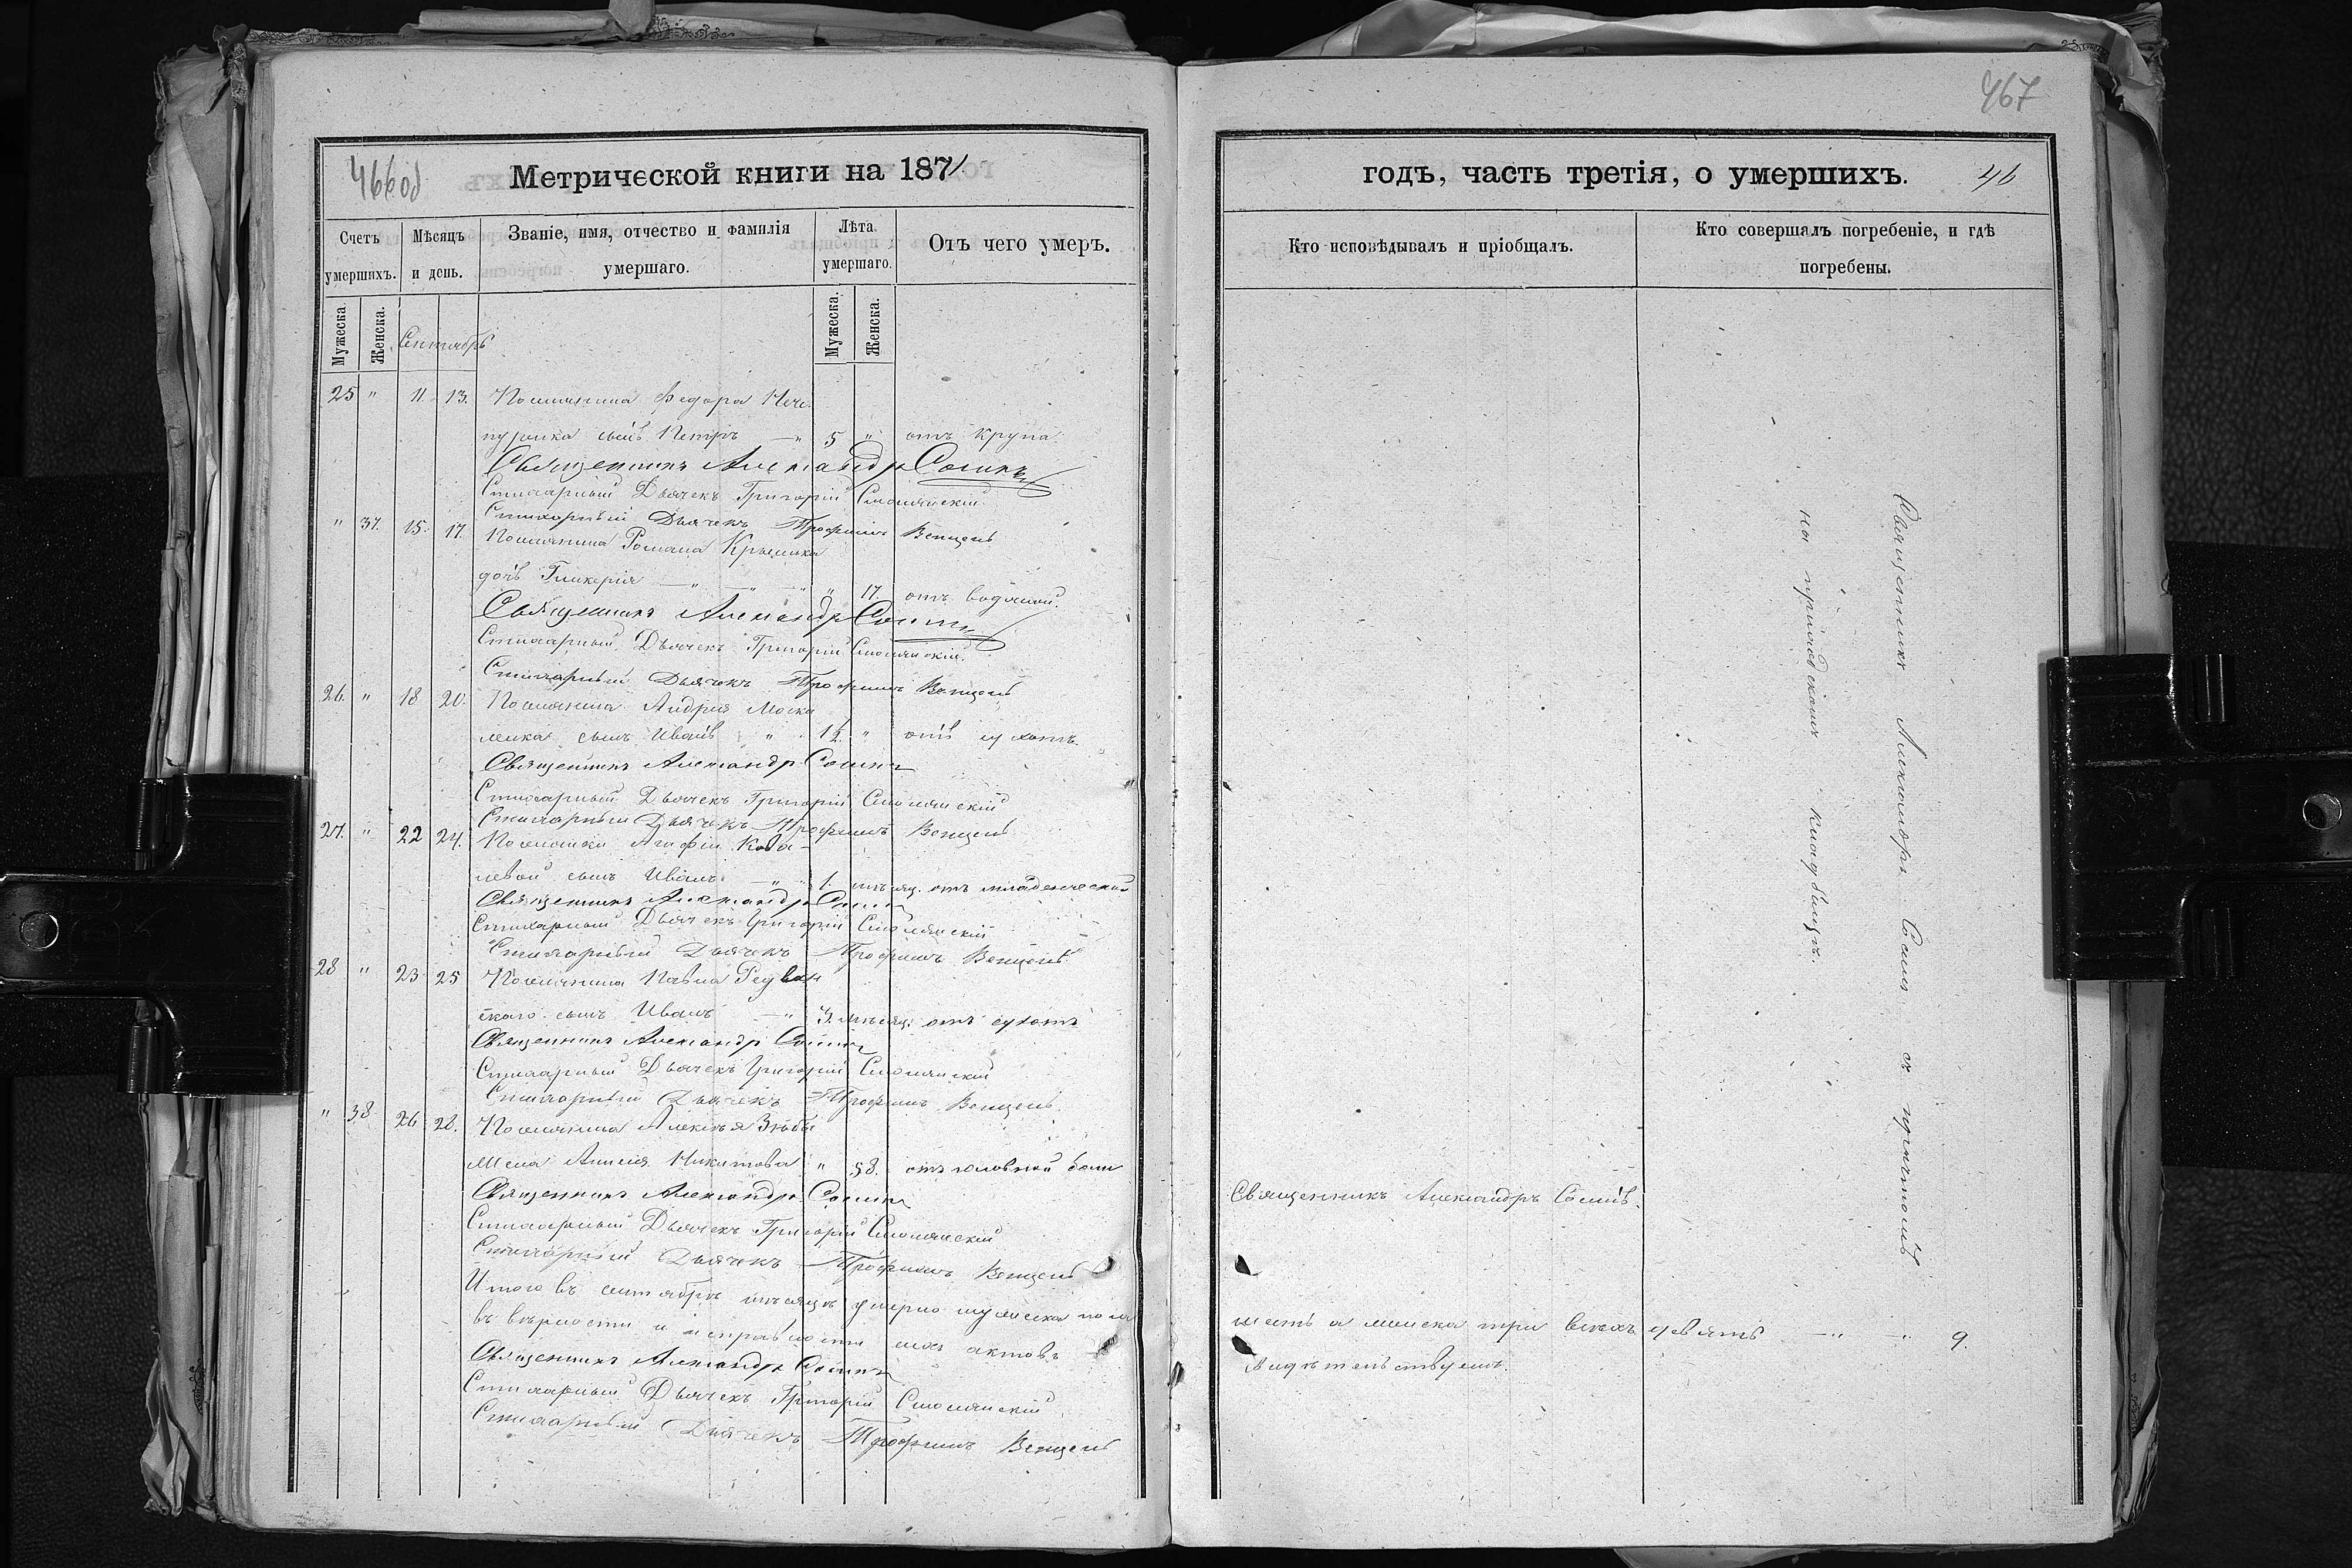 467
466об
Метрической книги на 1871
годъ, часть третія, о умершихъ.
46
Счетъ умершихъ.
Мѣсяцъ и день.
Званіе, имя, отчество и фамилія умершаго.
Лѣта умершаго.
Отъ чего умеръ.
Кто исповѣдывалъ и пріобщалъ.
Кто совершалъ погребеніе, и гдѣ погребены.
Мужеска.
Женска.
Сентябрь
Мужеска.
Женска.
25 " 11. 13. Поселянина Федора Нече-
пуренка сынъ Петръ — " 5 " отъ крупа.
Священникъ Александръ
Стихарный Дьячекъ Григорій Смолянскій
Стихарный Дьячекъ Трофимъ Венцель
" 37. 15. 17. Поселянина Романа
дочь Гликерія — " — " — " " 17. отъ водяной.
Священникъ Александръ
Стихарный Дьячекъ Григорій Смолянскій.
Стихарный Дьячекъ Трофимъ Венцель
26. " 18 20. Поселянина Андрея Моска
ленка сынъ Иванъ " 1½ " отъ сухотъ.
Священникъ Александръ
Стихарный Дьячекъ Григорій Смолянскій
Стихарный Дьячекъ Трофимъ Венцель
27. " 22 24. Поселянки Агафіи Кова-
левой сынъ Иванъ — " 1. мѣсяц. отъ младенческой
Священникъ Александръ
Стихарный Дьячекъ Григорій Смолянскій
Стихарный Дьячекъ Трофимъ Венцель
28 " 23 25 Поселянина Павла
скаго сынъ Иванъ — " 3. мѣсяц. отъ сухотъ
Священникъ Александръ
Стихарный Дьячекъ Григорій Смолянскій
Стихарный Дьячекъ Трофимъ Венцель.
" 38 26 28. Поселянина Алексѣя
Жена Никитова " 58. отъ головной боли
Священникъ Александръ
Священникъ Александръ
Стихарный Дьячекъ Григорій Смолянскій
Стихарный Дьячекъ Трофимъ Венцель
Итого въ сентябрѣ мѣсяцѣ умерло мужеска пола
шесть а женска три всѣхъ девять — " — " 9.
въ вѣрности и исправности сихъ актовъ
свидѣтельствуемъ.
Священникъ Александръ
Стихарный Дьячекъ Григорій Смолянскій
Стихарный Дьячекъ Трофимъ Венцель
Священникъ Александръ съ причтомъ
на приходскомъ кладбищѣ.